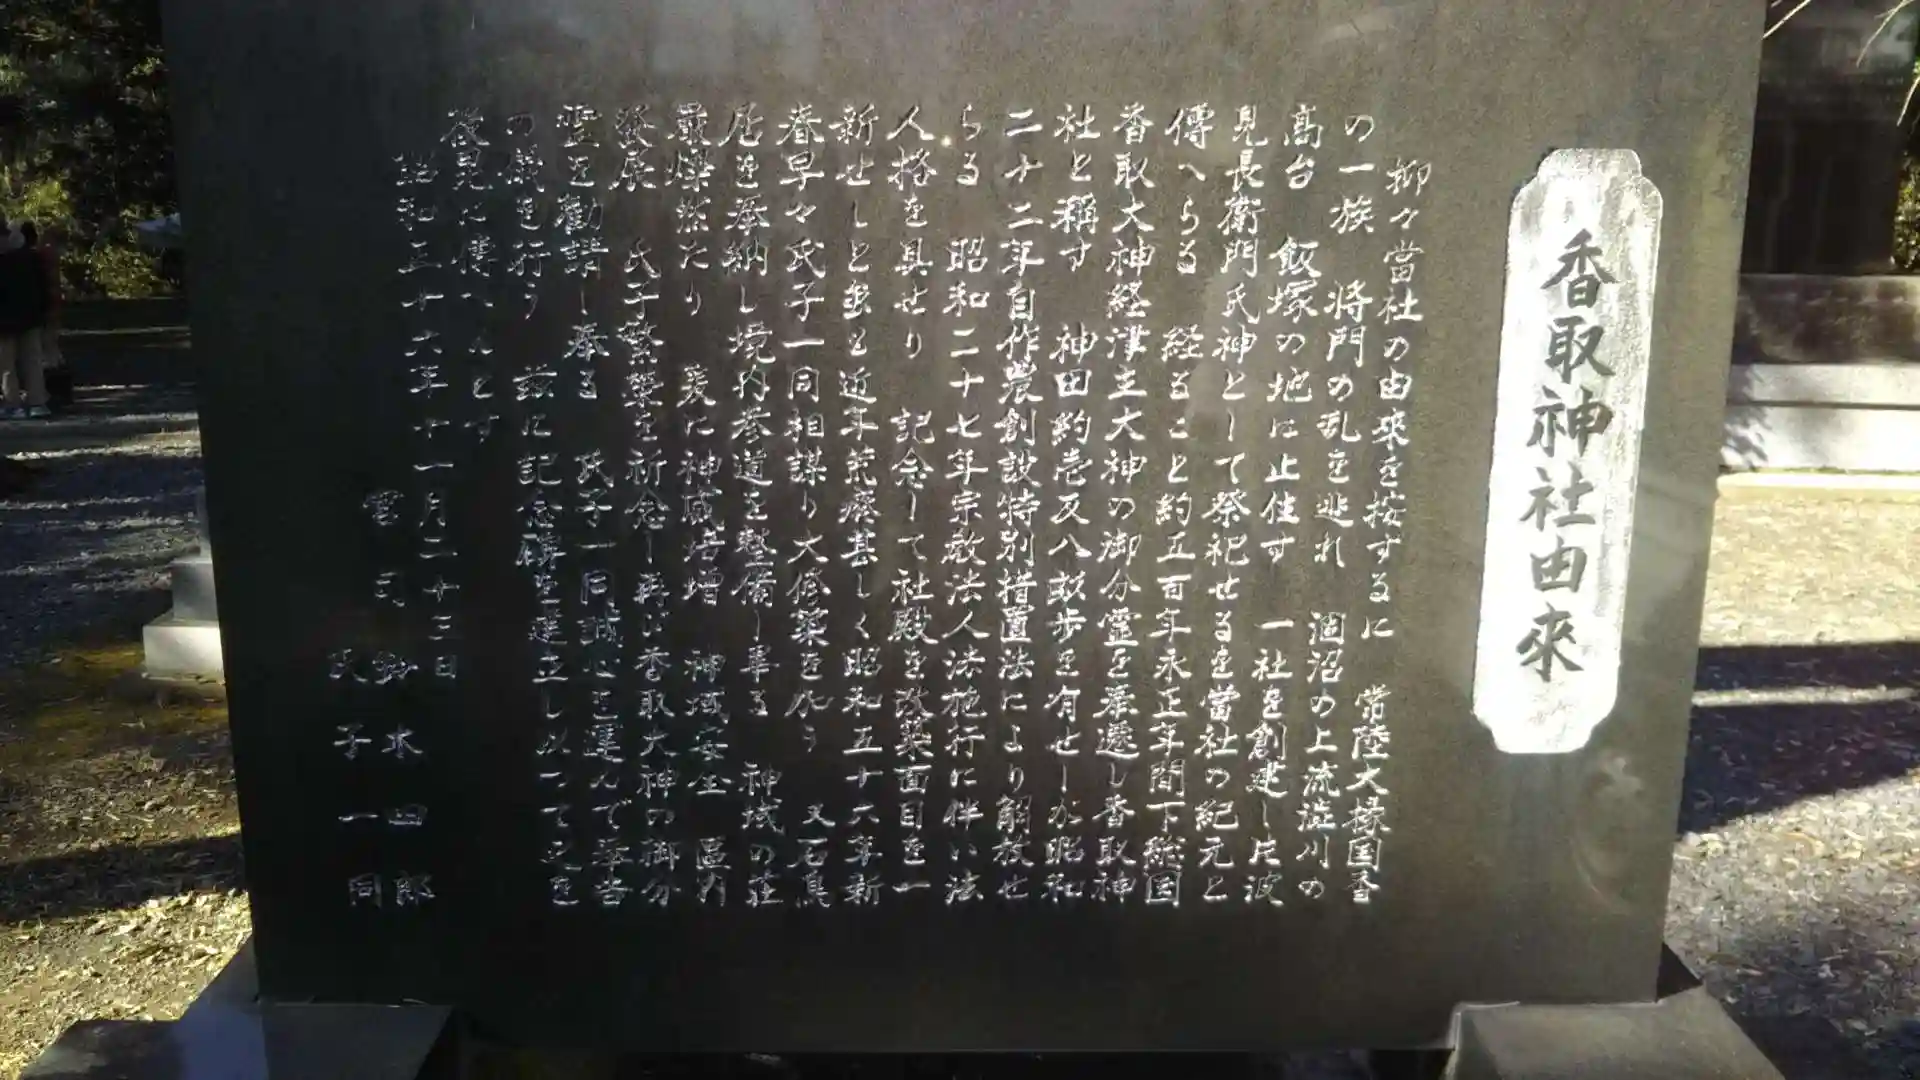 香取神社由來
抑々當社の由來を按するに 常陸大掾国香
の一族 将門の乱を逃れ 涸沼の上流澁川の
髙台 飯塚の地に止住す 一社を創建した波
見長衛門氏神として祭祀せるを當社の紀元と
傳へらる 経ること約五百年永正年間下總国
香取大神経津主大神の御分霊を奉遷し香取神
社と稱す 神田約壱反八畝歩を有せしが昭和
二十二年自作農創設特別措置法により解放せ
らる 昭和二十七年宗教法人法施行に伴い法
人格を具せり 記念して社殿を改築面目を一
新せしと虽と近年荒廃甚しく昭和五十六年新
春早々氏子一同相謀り大修築を加う 又石鳥
居を奉納し境内参道を整備し畢る 神域の荘
厳燦然たり 爰に神威倍増 神域安全 區内
發展 氏子繁榮を祈念し再び香取大神の御分
霊を勸請し奉る 氏子一同誠心を運んで奉告
の儀を行う 茲に記念碑を建立し以って之を
後昆に傳へんとす
昭和五十六年十一月二十三日
宮司 鈴木田郎
氏子一同